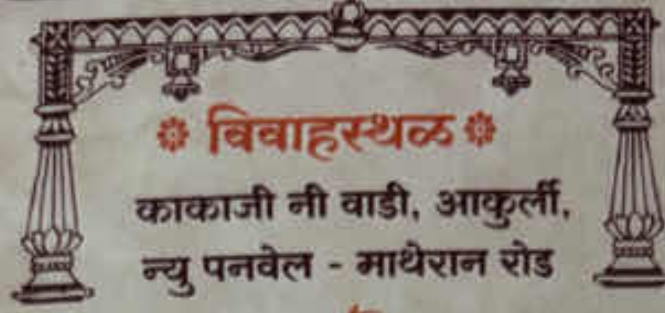 विवाहस्थळ
काकाजी नी वाडी, आकुर्ली,
न्यु पनवेल - माथेरान रोड